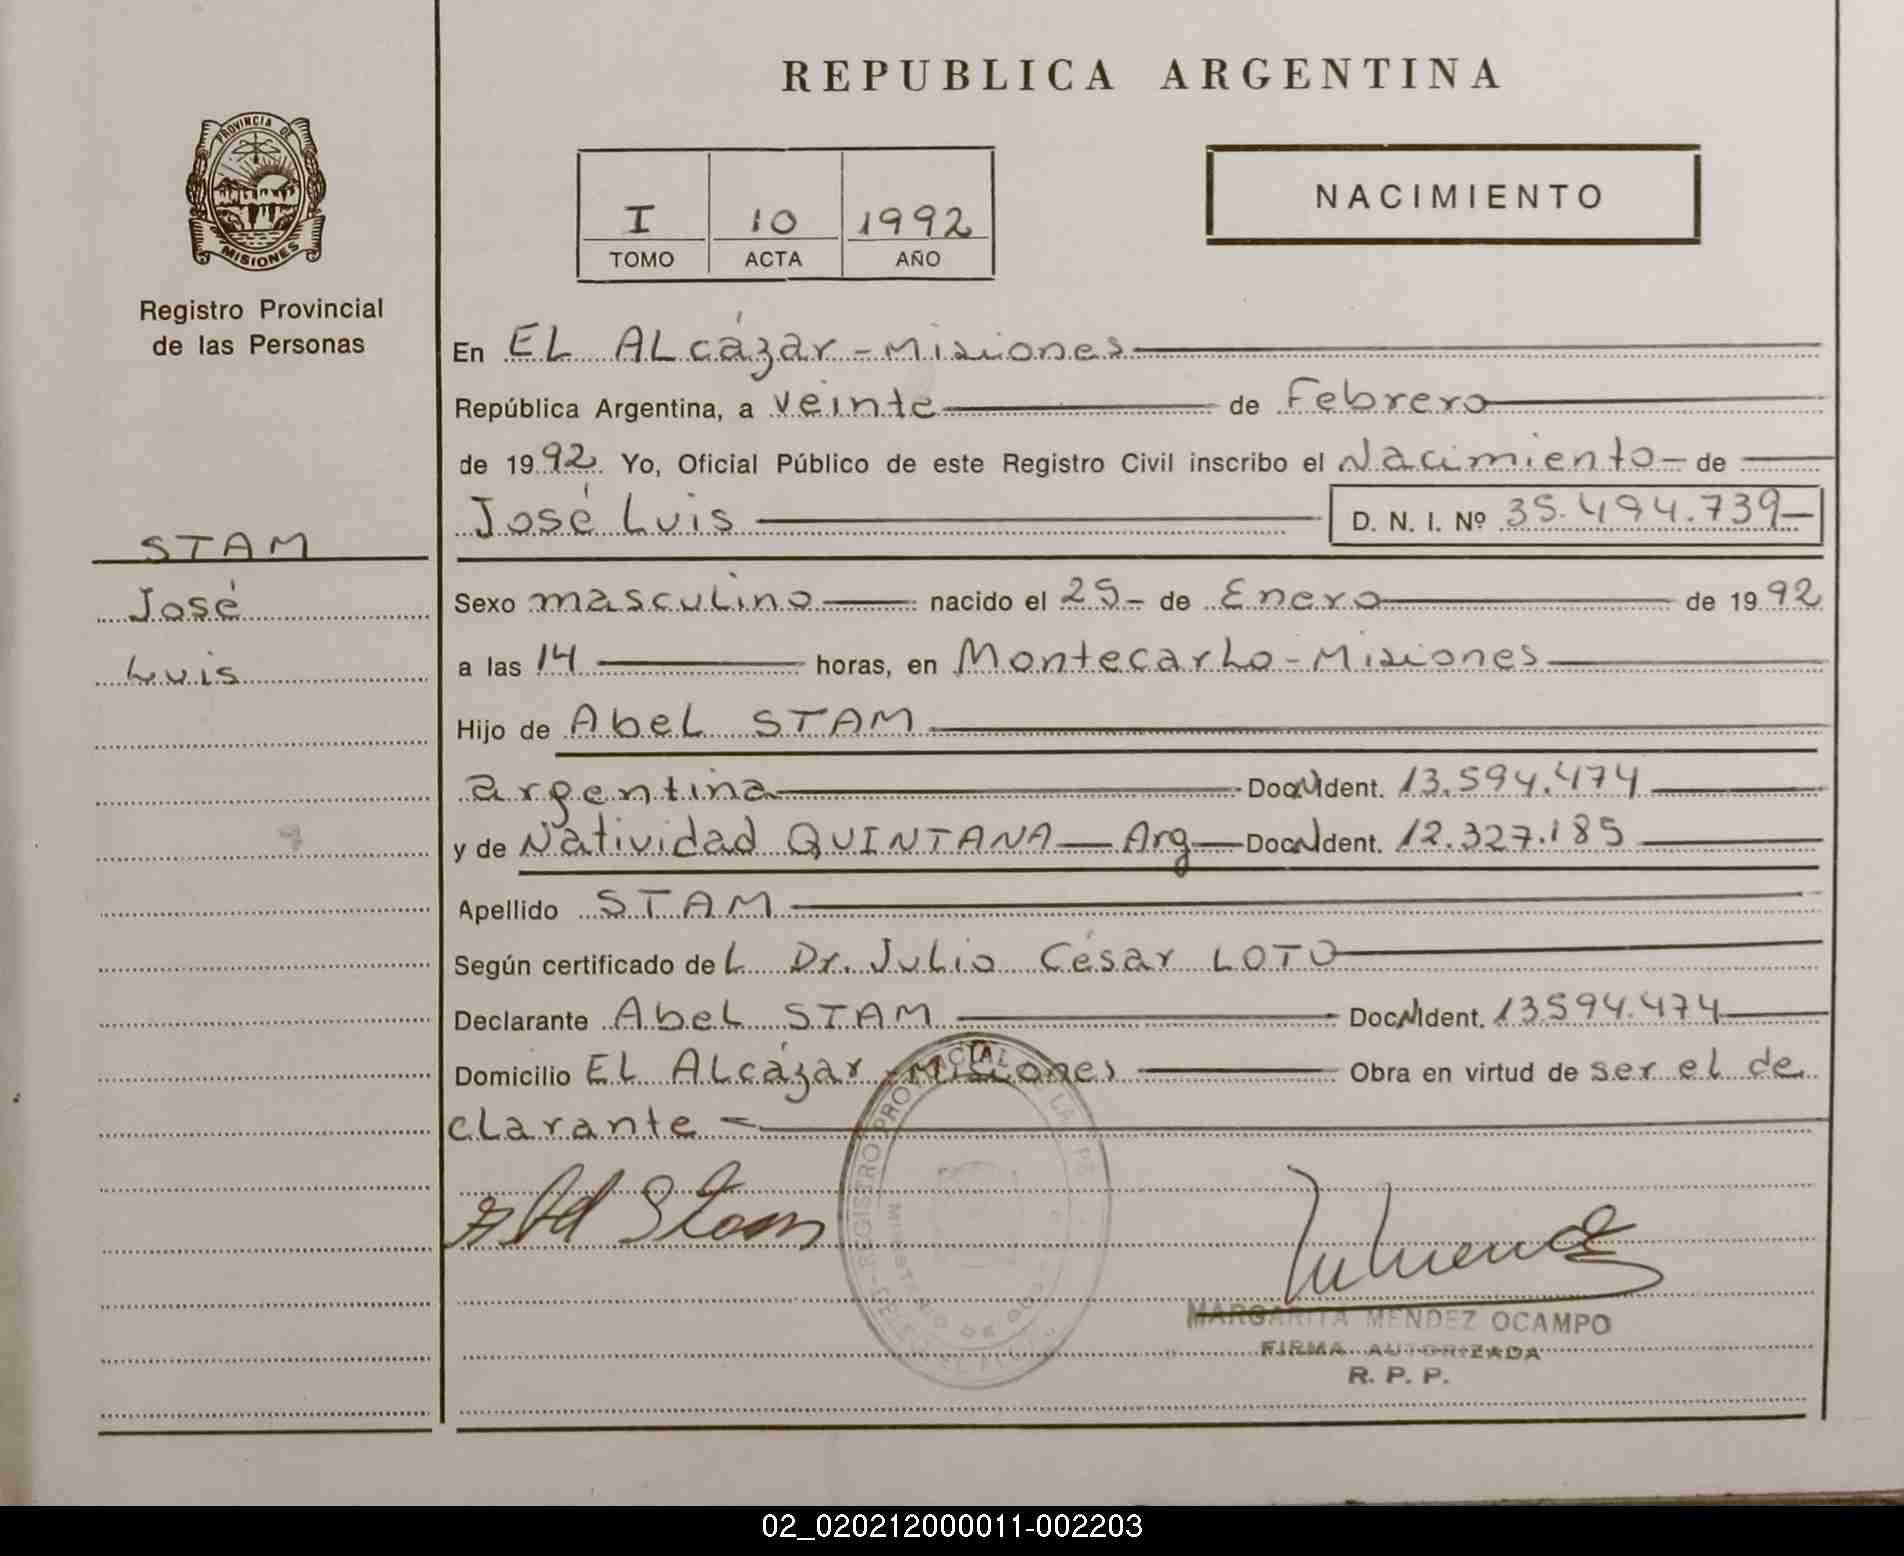 REPUBLICA ARGENTINA
PROVINCIA DE
MISIONES
Registro Provincial
de las Personas
I 10 1992
TOMO ACTA AÑO
NACIMIENTO
En EL ALcázar - Misiones
República Argentina, a veinte de Febrero
de 1992. Yo, Oficial Público de este Registro Civil inscribo el Nacimiento de
José Luis D. N. I. Nº 35.494.739
STAM
José
Luis
Sexo masculino nacido el 25 de Enero de 1992
a las 14 horas, en Montecarlo - Misiones
Hijo de Abel STAM
argentina Doc. Ident. 13.594.474
y de Natividad QUINTANA Arg Doc. Ident. 12.327.185
Apellido STAM
Según certificado del Dr. Julio César LOTO
Declarante Abel STAM Doc. Ident. 13594.474
Domicilio EL ALcázar - Misiones Obra en virtud de ser el de
clarante
Abel Stam
REGISTRO PROVINCIAL DE LAS
MINISTERIO DE GOB
MARGARITA MENDEZ OCAMPO
FIRMA AUTORIZADA
R. P. P.
02_020212000011-002203